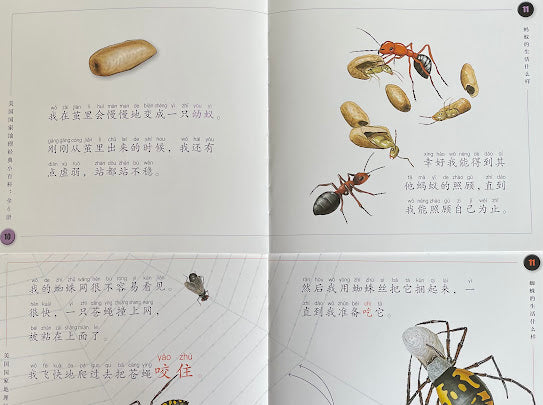 11
蚂蚁的生活什么样
wǒ zài jiǎn lǐ huì màn màn de biàn chéng yì zhī yòu yǐ
我在茧里会慢慢地变成一只幼蚁。
gāng gāng cóng jiǎn lǐ chū lái de shí hou wǒ hái yǒu
刚刚从茧里出来的时候，我还有
diǎn xū ruò zhàn dōu zhàn bù wěn
点虚弱，站都站不稳。
xìng hǎo wǒ néng dé dào qí
幸好我能得到其
tā mǎ yǐ de zhào gù zhí dào
他蚂蚁的照顾，直到
wǒ néng zhào gù zì jǐ wéi zhǐ
我能照顾自己为止。
美国国家地理经典小百科
全6册
10
11
蜘蛛的生活什么样
wǒ de zhī zhū wǎng hěn bù róng yì kàn jiàn
我的蜘蛛网很不容易看见。
hěn kuài yì zhī cāng ying zhuàng shàng wǎng
很快，一只苍蝇撞上网，
bèi zhān zài shàng miàn le
被粘在上面了。
wǒ fēi kuài de pá guò qù bǎ cāng ying yǎo zhù
我飞快地爬过去把苍蝇咬住。
rán hòu wǒ yòng zhī zhū sī bǎ tā kǔn qǐ lái yì
然后我用蜘蛛丝把它捆起来，一
zhí dào wǒ zhǔn bèi chī tā
直到我准备吃它。
美国国家地理